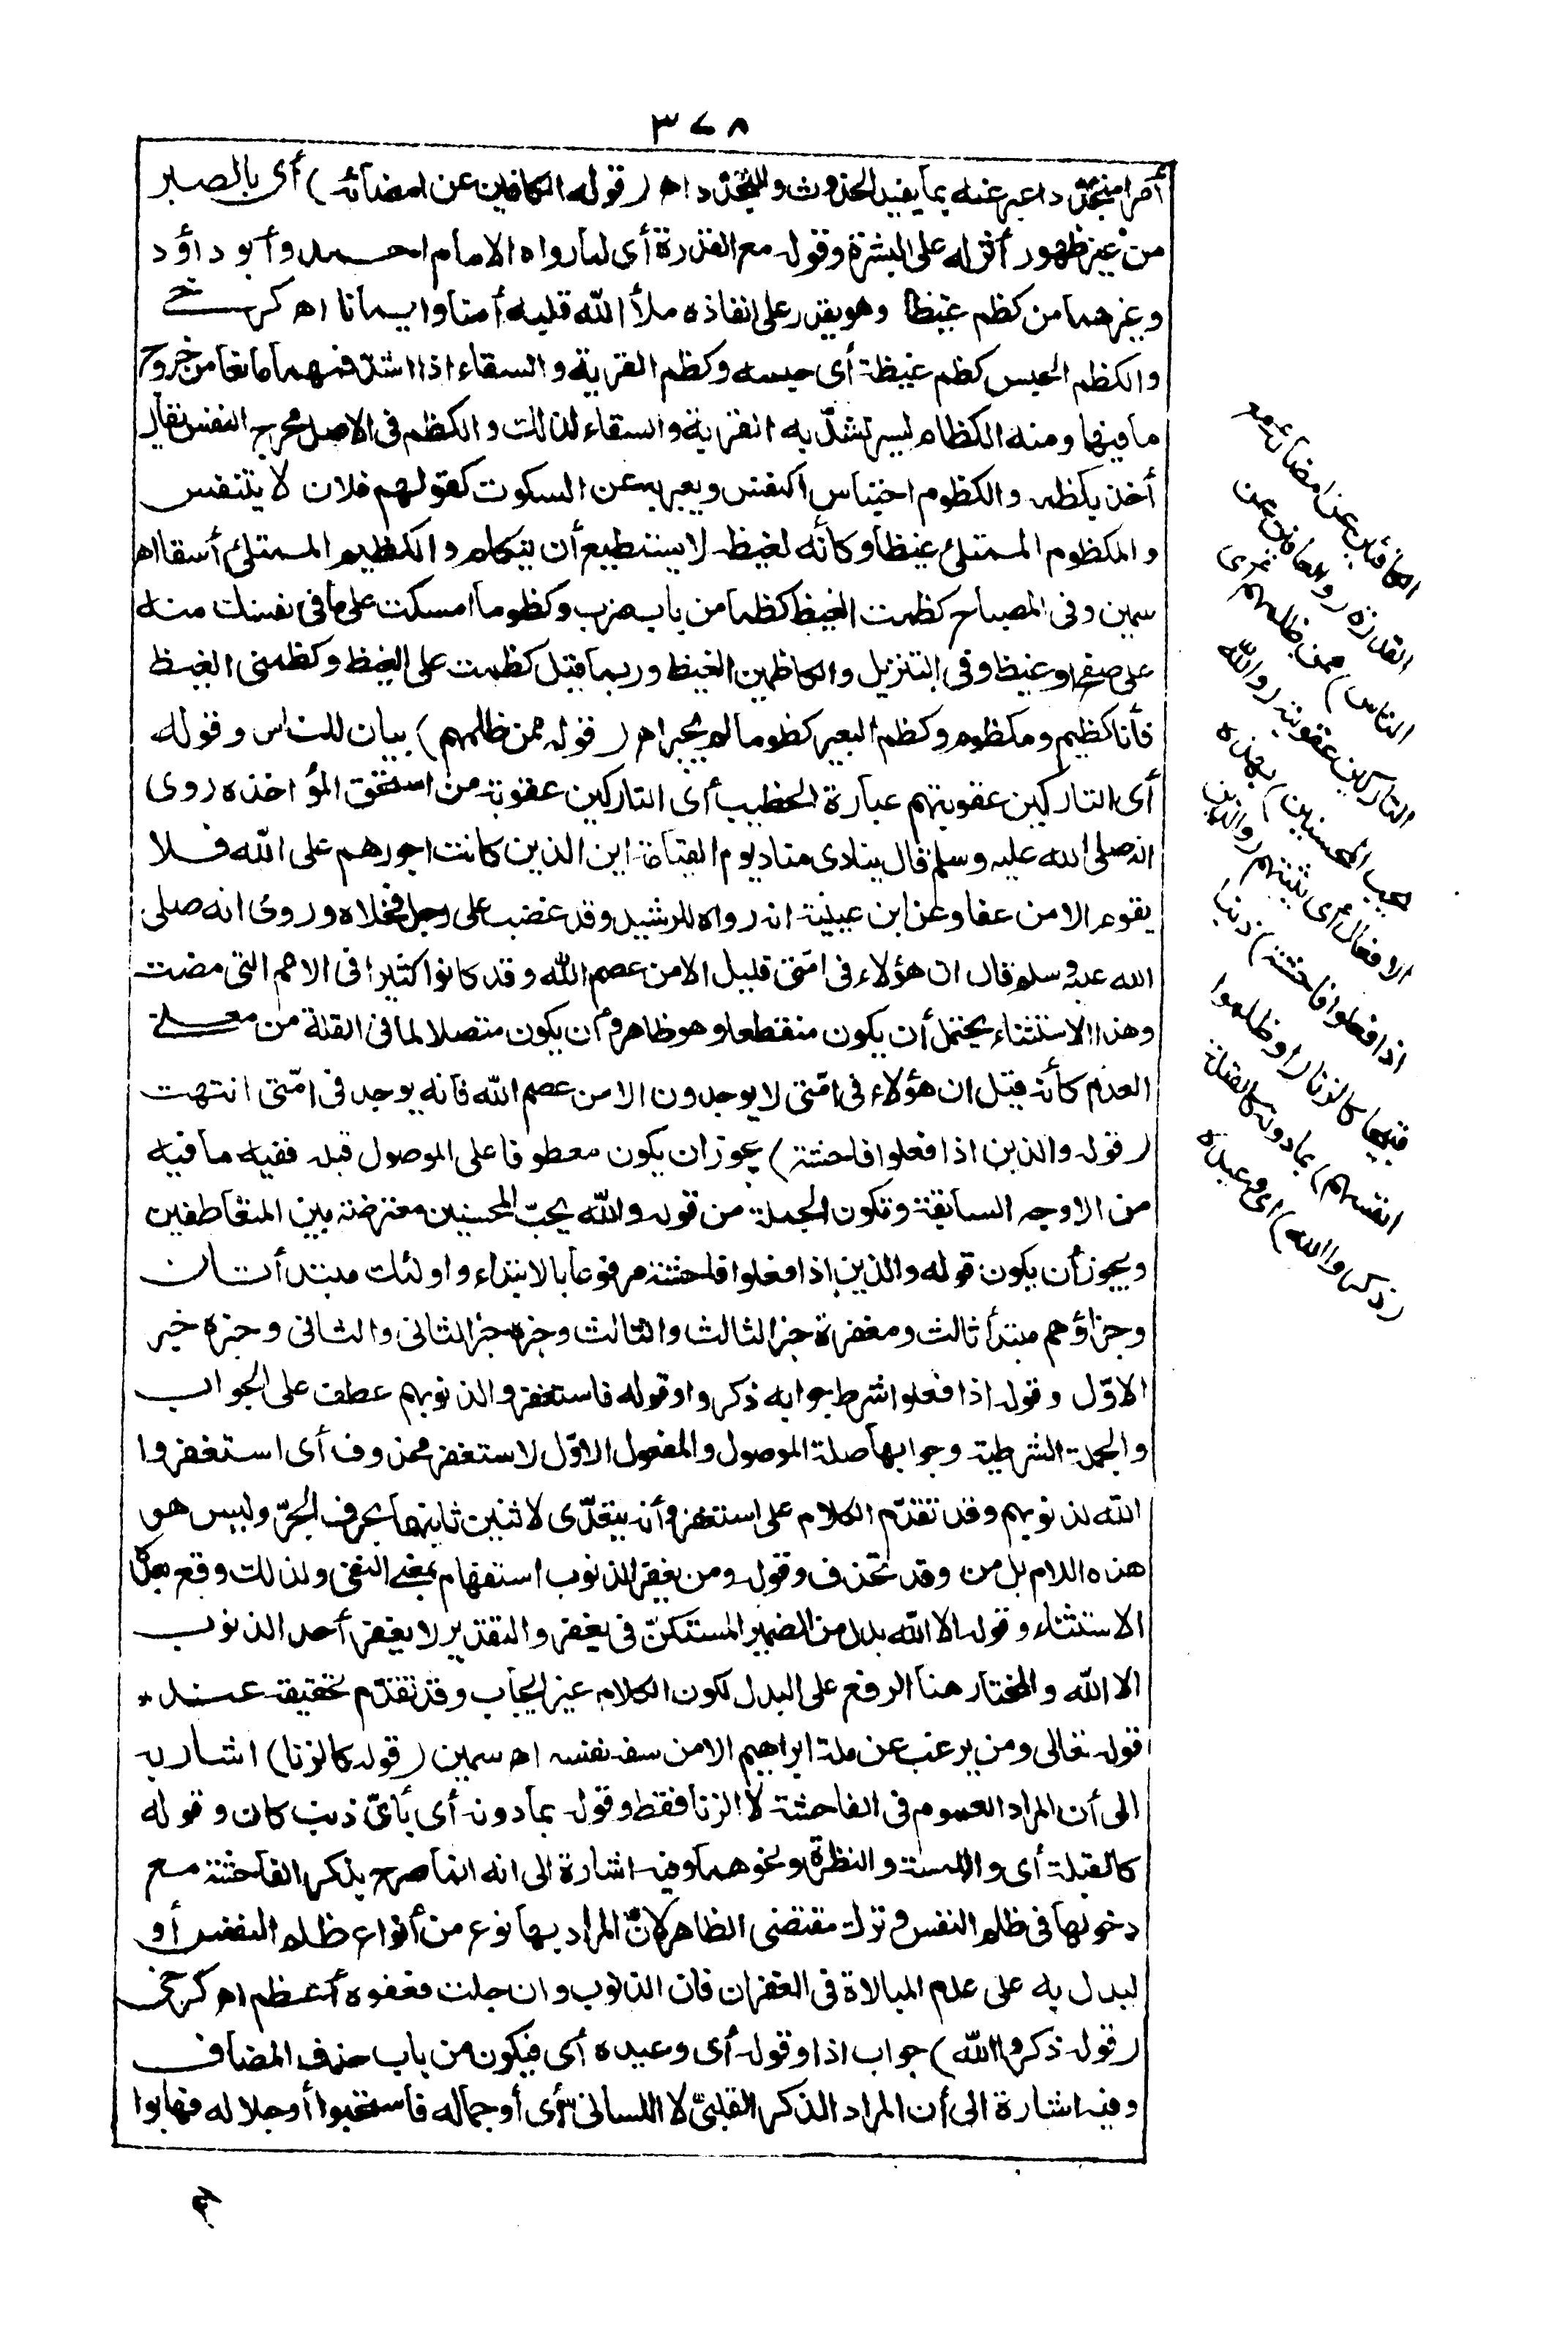 ٣٧٨
أمرا متجدّدا عبر عنه بما يفيد الحدوث والتجدّد اه (قوله الكافين عن امضائه) أى بالصبر
من غير ظهور أثر له على البشرة وقوله مع القدرة أى لما رواه الامام احمد وأبو داؤد
وغيرهما من كظم غيظا وهو يقدر على انفاذه ملأ الله قلبه أمنا وايمانا اه كرخى
والكظم الحبس كظم غيظه أى حبسه وكظم القربة والسقاء اذا اشدّ فمهما مانعا من خروج
ما فيها ومنه الكظام لسير تشدّ به القربة والسقاء لذلك والكظم فى الاصل مخرج النفس يقال
أخذ بكظمه والكظوم احتباس النفس ويعبر به عن السكوت كقولهم فلان لا يتنفس
والمكظوم الممتلئ غيظا وكأنه لغيظه لا يستطيع أن يتكلم والكظيم الممتلئ أسفا اه
سمين وفى المصباح كظمت الغيظ كظما من باب ضرب وكظوما امسكت على ما فى نفسك منه
على صفح او غيظ وفى التنزيل والكاظمين الغيظ وربما قيل كظمت على الغيظ وكظمنى الغيظ
فأنا كظيم ومكظوم وكظم البعير كظوما لم يجتر اه (قوله ممن ظلمهم) بيان للناس وقوله
أى التاركين عقوبتهم عبارة الخطيب أى التاركين عقوبة من استحق المؤاخذه روى
انه صلى الله عليه وسلم قال ينادى مناد يوم القيامة اين الذين كانت اجورهم على الله فلا
يقوم الا من عفا وعن ابن عيينة انه رواه للرشيد وقد غضب على رجل فخلاه وروى انه صلى
الله عليه وسلم قال ان هؤلاء فى امّتى قليل الا من عصم الله وقد كانوا كثيرا فى الامم التى مضت
وهذا الاستثناء يحتمل أن يكون منقطعا وهو ظاهر وأن يكون متصلا لما فى القلة من معنى
العدم كأنه قيل ان هؤلاء فى امّتى لا يوجدون الا من عصم الله فانه يوجد فى امّتى انتهت
(قوله والذين اذا فعلوا فاحشة) يجوز ان يكون معطوفا على الموصول قبله ففيه ما فيه
من الاوجه السابقة وتكون الجملة من قوله والله يحبّ المحسنين معترضة بين المتعاطفين
ويجوز أن يكون قوله والذين اذا فعلوا فاحشة مرفوعا بالابتداء واولئك مبتدأ ثان
وجزاؤهم مبتدأ ثالث ومغفرة خبر الثالث والثالث وخبره خبر الثانى والثانى وخبره خبر
الاوّل وقوله اذا فعلوا شرط جوابه ذكروا وقوله فاستغفروا لذنوبهم عطف على الجواب
والجملة الشرطية وجوابها صلة الموصول والمفعول الاوّل لاستغفر محذوف أى استغفروا
الله لذنوبهم وقد تقدّم الكلام على استغفر وأنه يتعدّى لاثنين ثانيهما بحرف الجرّ وليس هو
هذه اللام بل من وقد تحذف وقوله ومن يغفر الذنوب استفهام بمعنى النفى ولذلك وقع بعده
الاستثناء وقوله الا الله بدل من الضمير المستكنّ فى يغفر والتقدير لا يغفر أحد الذنوب
الا الله والمختار هنا الرفع على البدل لكون الكلام غير ايجاب وقد تقدّم تحقيقه عند
قوله تعالى ومن يرغب عن ملة ابراهيم الا من سفه نفسه اه سمين (قوله كالزنا) اشار به
الى أن المراد العموم فى الفاحشة لا الزنا فقط وقوله بما دونه أى بأىّ ذنب كان وقوله
كالقبلة أى واللمسة والنظرة ونحوهما وفيه اشارة الى انه انما صرح بذكر الفاحشة مع
دخولها فى ظلم النفس وترك مقتضى الظاهر لانّ المراد بها نوع من أنواع ظلم النفس أو
ليدل به على عدم المبالاة فى الغفران فان الذنوب وان جلت فعفوه أعظم اه كرخى
(قوله ذكروا الله) جواب اذا وقوله أى وعيده أى فيكون من باب حذف المضاف
وفيه اشارة الى أن المراد الذكر القلبىّ لا اللسانى أى أو جماله فاستحيوا أو جلاله فهابوا
الكافين عن امضائه مع
القدرة (والعافين عن
الناس) ممن ظلمهم أى
التاركين عقوبته (والله
يحب المحسنين) بهذه
الافعال أى يثيبهم (والذين
اذا فعلوا فاحشة) ذنبا
قبيحا كالزنا (او ظلموا
انفسهم) بما دونه كالقبلة
(ذكروا الله) اى وعيده